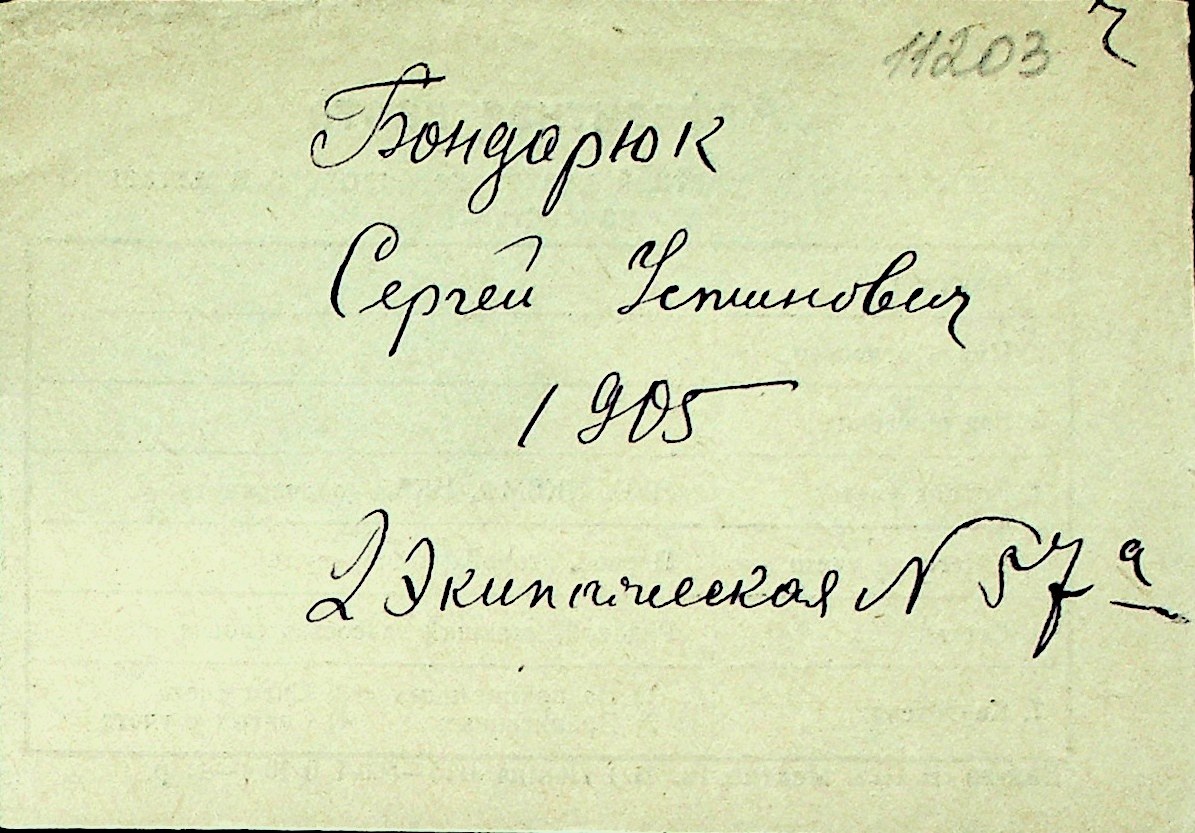 11203 ч
Бондарюк
Сергей Устинович
1905
2 Экипаческая N 57 а